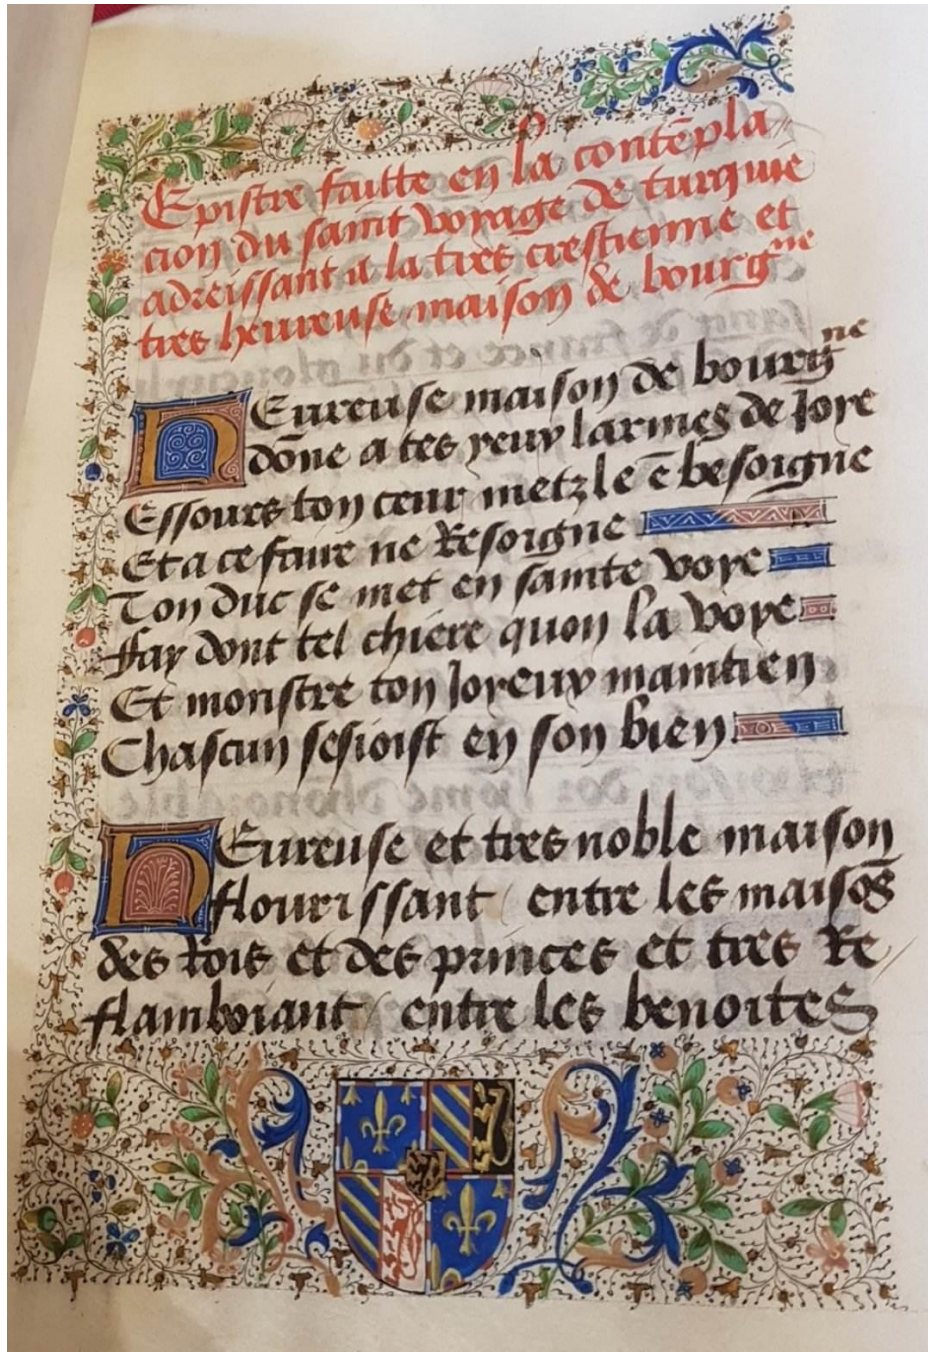 Epistre faitte en la contẽpla
cion du saint voyage de turquie
adreissant a la tres crestienne et
tres heureuse maison de bourgne
HEureuse maison de bourgne
dõne a tes yeux larmes de Joye
Essours ton ceur metz le ẽ besoigne
Et a ce faire ne Resoigne
Ton duc se met en sainte voye
Fay dont tel chiere quon la voye
Et monstre ton Joyeux maintien
Chascun sesioist en son bien
HEureuse et tres noble maison
flourissant / entre les maisõs
des Rois et des princes et tres Re/
flamboiant / entre les benoites